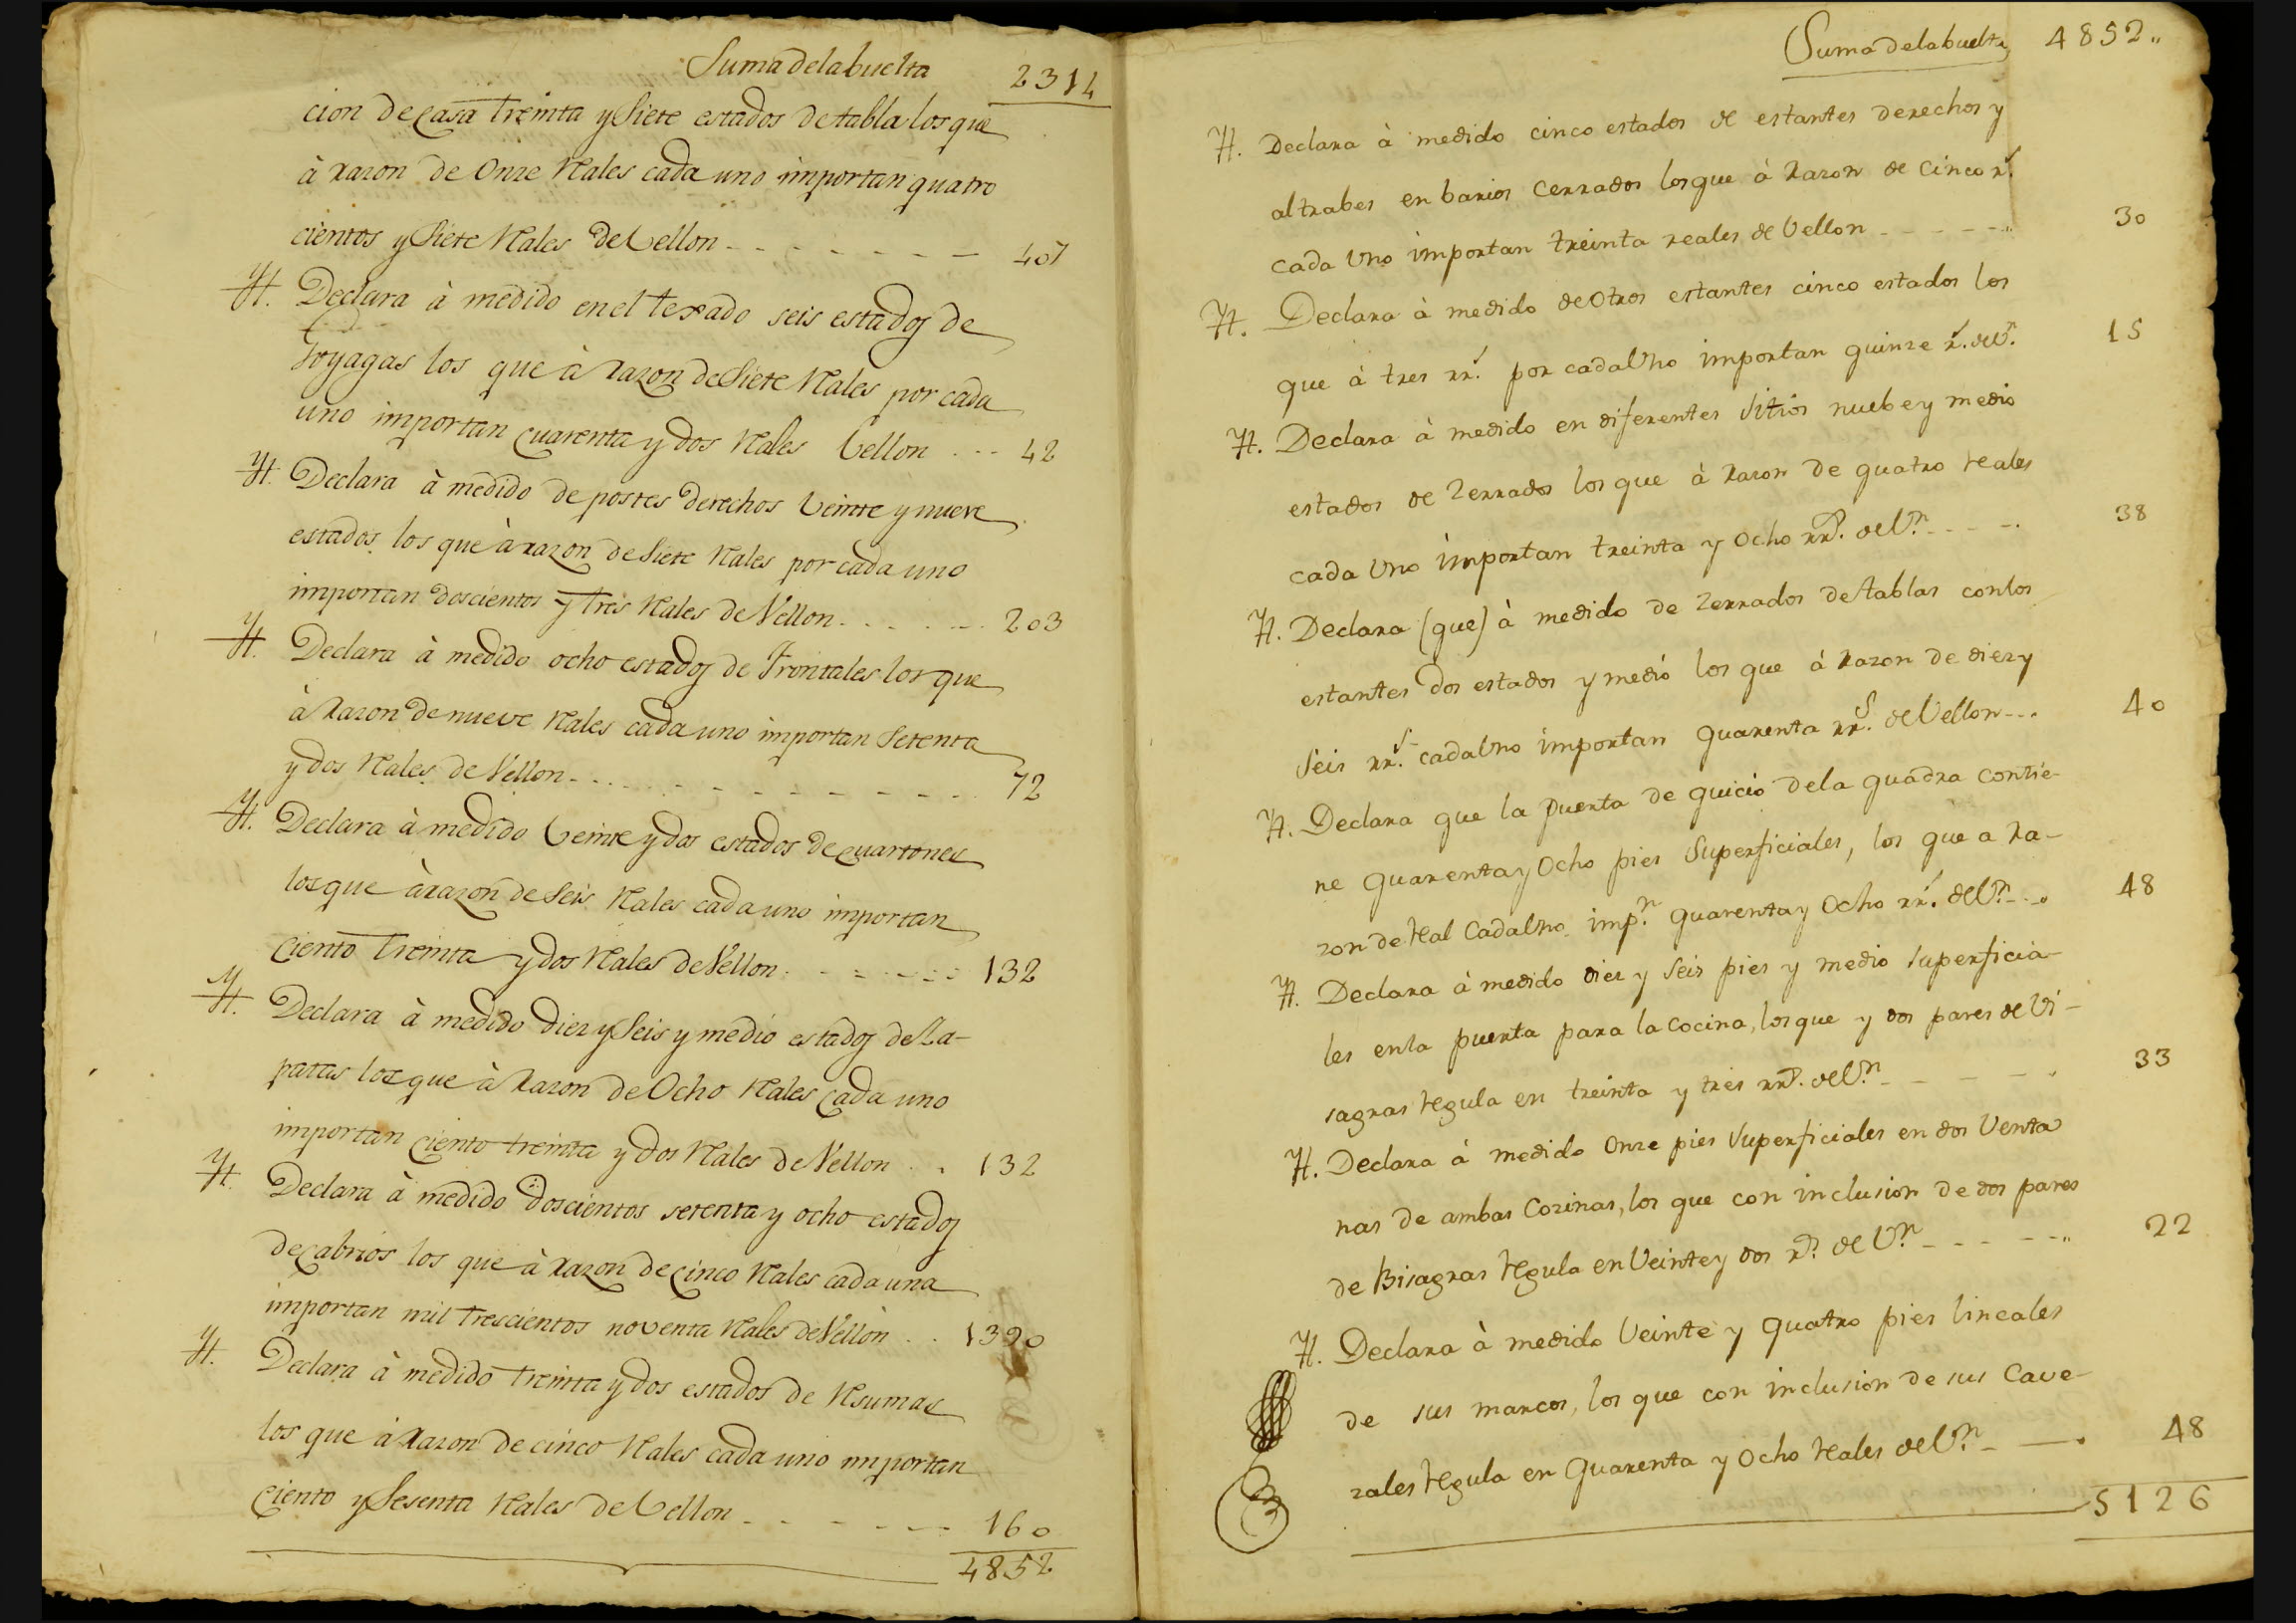 Suma delabuelta 2314
cion de casa treinta y Siete estados de tabla los que
à razon de Onze Rales cada uno importan quatro
cientos y Siete Rales de Vellon - - - - - - - 407
Yt. Declara à medido en el texado seis estados de
Foyagas los que à razon de Siete Rales por cada
uno importan cuarenta y dos Rales Vellon . - - 42
Yt. Declara à medido de postes Derechos Veinte y nueve
estados, los que à razon de Siete Rales por cada uno
importan doscientos y tres Rales de Vellon. - - - - 203
Yt. Declara à medido ocho estados de Frontales los que
à razon de nueve Rales cada uno importan Setenta
y dos Rales de Vellon - - - - - - - - 72
Yt. Declara à medido Veinte y dos estados de cuartones
los que à razon de Seis Rales cada uno importan
Ciento Treinta y dos Rales de Vellon. - - - - 132
Yt. Declara à medido diez y Seis y medio estados de Za-
patas los que à razon de Ocho Rales cada uno
importan ciento treinta y dos Rales de Vellon . . 132
Yt. Declara à medido doscientos setenta y ocho estados
de cabrios los que à razon de cinco Rales cada una
importan mil trescientos noventa Rales de Vellon . . 1390
Yt. Declara à medido treinta y dos estados de Rsumas
los que à razon de cinco Rales cada uno importan
Ciento y Sesenta Rales de Vellon - - - - - - 160
4852
Suma delabuelta 4852..
Yt. Declara à medido cinco estados de estantes derechos y
al trabes en barios cerrados los que à razon de Cinco rs.
cada Uno importan treinta reales de Vellon - - - - - 30
Yt. Declara à medido de Otros estantes cinco estados los
que à tres rrs. por cada Uno importan quinze rs. de Vn. 15
Yt. Declara à medido en diferentes Sitios nuebe y medio
estados de Zerrados los que à razon de quatro Reales
cada Uno importan treinta y Ocho rrs. de Vn. - - - . 38
Yt. Declara (que) à medido de Zerrados de tablas con los
estantes dos estados y medio los que à razon de diez y
Seis rrs. cada Uno importan quarenta rrs. de Vellon - - . 40
Yt. Declara que la puerta de quicio de la quadra contie-
ne quarenta y Ocho pies Superficiales, los que a ra-
zon de Real Cada Uno impn. quarenta y Ocho rrs. de Vn. - . 48
Yt. Declara à medido diez y Seis pies y medio superficia-
les en la puerta para la Cocina, los que y dos pares de Vi-
sagras Regula en treinta y tres rrs. de Vn. - - - - 33
Yt. Declara à medido Onze pies Superficiales en dos Venta
nas de ambas Cozinas, los que con inclusion de dos pares
de Bisagras Regula en Veinte y dos rs. de Vn. - - - - - 22
Yt. Declara à medido Veinte y quatro pies lineales
de sus marcos, los que con inclusion de sus Cave-
zales Regula en Quarenta y Ocho Reales de Vn. - — . 48
5126